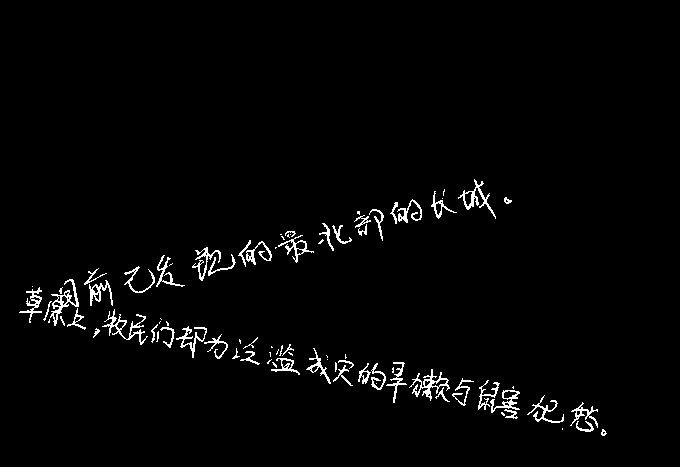 目前已发现的最北部的长城。
草原上,牧民们却为泛滥成灾的旱獭与鼠害犯愁。